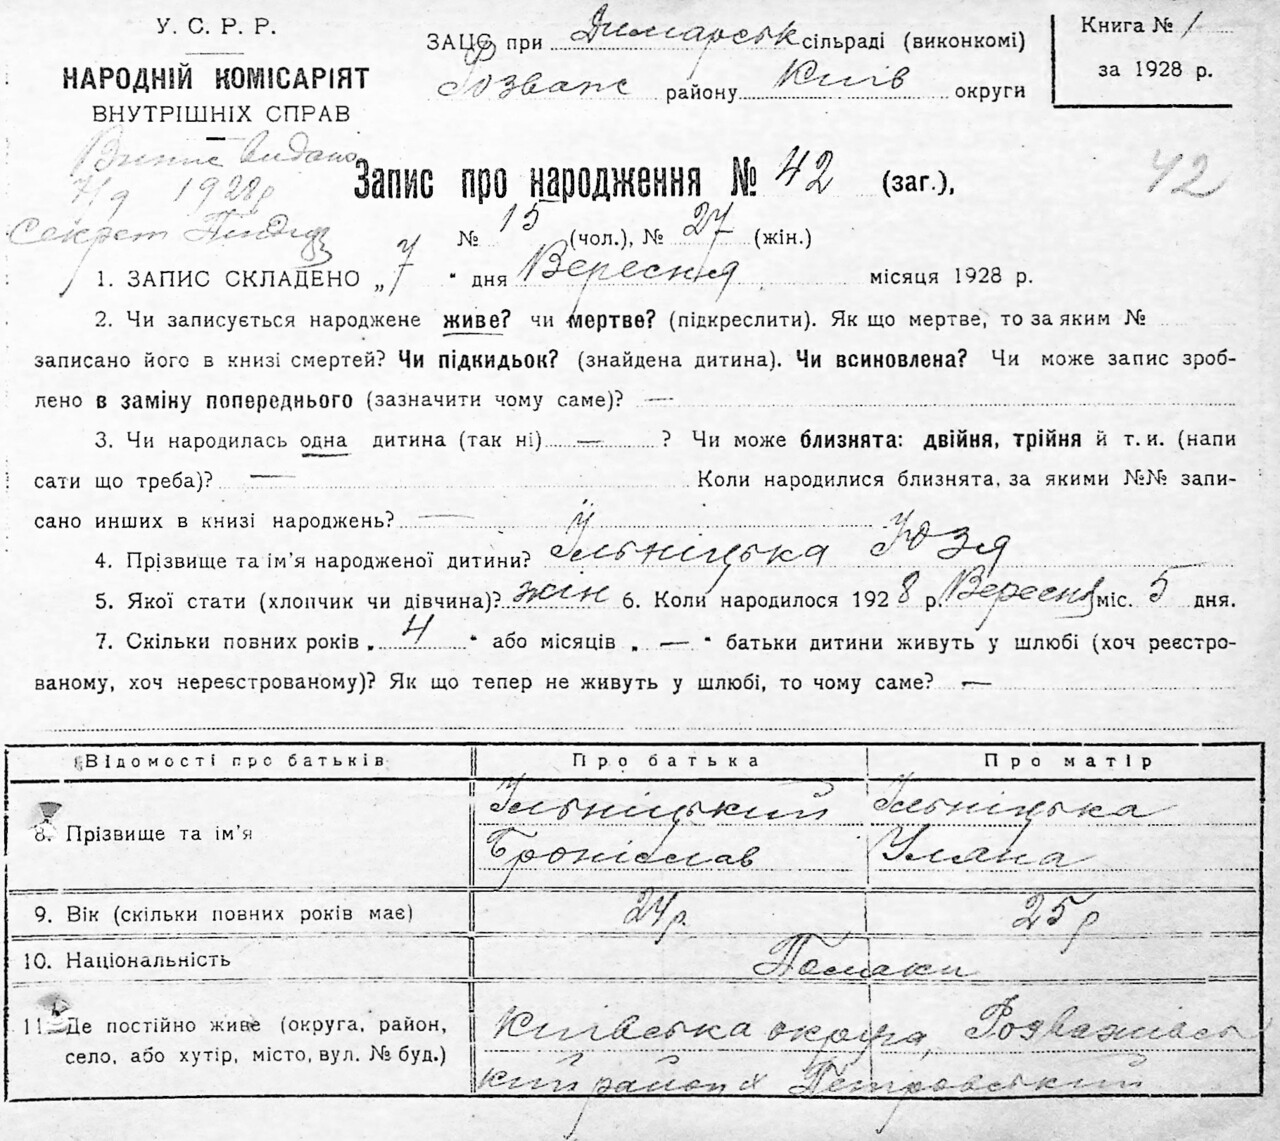 У. С. Р. Р.
НАРОДНІЙ КОМІСАРІЯТ
ВНУТРІШНІХ СПРАВ
ЗАЦС при Димарськ сільраді (виконкомі)
Розваж району Київ округи
Книга № 1
за 1928 р.
Випис видано
7/9 1928р
Секрет
Запис про народження № 42 (заг.),
42
№ 15 (чол.), № 27 (жін.)
1. ЗАПИС СКЛАДЕНО „ 7 " дня Вересня місяця 1928 р.
2. Чи записується народжене живе? чи мертве? (підкреслити). Як що мертве, то за яким №
записано його в книзі смертей? Чи підкидьок? (знайдена дитина). Чи всиновлена? Чи може запис зроб-
лено в заміну попереднього (зазначити чому саме)? —
3. Чи народилась одна дитина (так ні) — ? Чи може близнята: двійня, трійня й т. и. (напи
сати що треба)? — Коли народилися близнята, за якими №№ запи-
сано инших в книзі народжень? —
4. Прізвище та ім'я народженої дитини? Ільніцька Юзя
5. Якої стати (хлопчик чи дівчина)? жін 6. Коли народилося 1928 р. Вересня міс. 5 дня.
7. Скільки повних років „ 4 " або місяців „ — " батьки дитини живуть у шлюбі (хоч реєстро-
ваному, хоч нереєстрованому)? Як що тепер не живуть у шлюбі, то чому саме? —
Відомості про батьків Про батька Про матір
8. Прізвище та ім'я Ільніцький Броніслав Ільніцька Уляна
9. Вік (скільки повних років має) 24р. 25р
10. Національність Поляки
11. Де постійно живе (округа, район, Київська округа, Розважівсь
село, або хутір, місто, вул. № буд.) кий район х Петровський